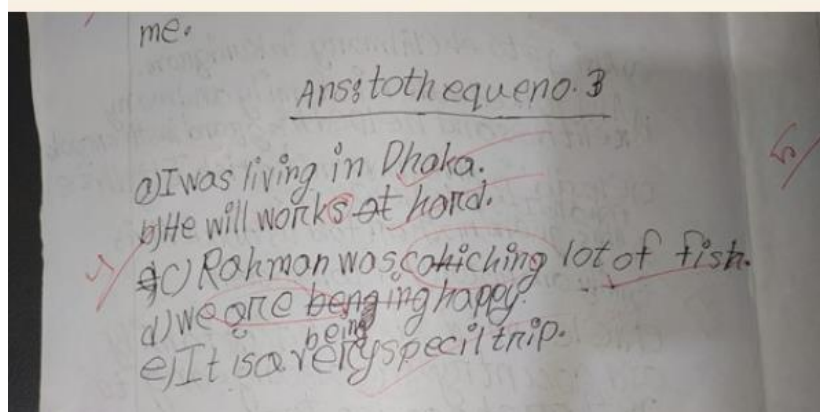 me.
Ans: to the que no. 3
a) I was living in Dhaka.
b) He will works at hard.
c) Rahman was cohiching lot of fish.
d) we are benging happy.
being
e) It is a very specil trip.